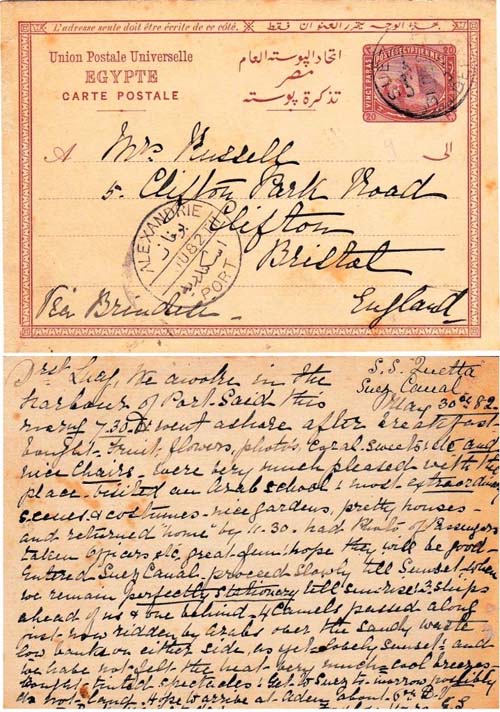 L'adresse seule doit être écrite de ce côté.
Union Postale Universelle
EGYPTE
CARTE POSTALE
اتحاد البوسته العام
مصر
تذكرة بوسته
POSTES EGYPTIENNES
VINGT PARAS
20
20
20
A
الى
Mrs Russell
5. Clifton Park Road
Clifton
Bristol
England
Via Brindisi
ALEXANDRIE
PORT
Dst Lucy, We awoke in the
harbour of Port Said this
morng 7.30. & went ashore after breakfast-
bought fruit, flowers, photos, coral, sweets, and
nice chairs. were very much pleased with the
place. visited an Arab school & most extraordinary
scenes & costumes - nice gardens, pretty houses -
and returned "home" by 11.30. had Photo of Passengers
taken Officers etc. great fun: hope they will be good-
Entered Suez Canal, proceed slowly till Sunset, when
we remain perfectly stationary till sunrise: 3 ships
ahead of us & one behind - 4 Camels passed along
just now ridden by Arabs over the sandy waste
low banks on either side, as yet. lovely sunset: and
we have not felt the heat very much - cool breezes-
bought tinted spectacles: Get to Suez to-morrow possibly
do not land. Hope we arrive at Aden about 6th
S.S. "Quetta"
Suez Canal
May 30th 82